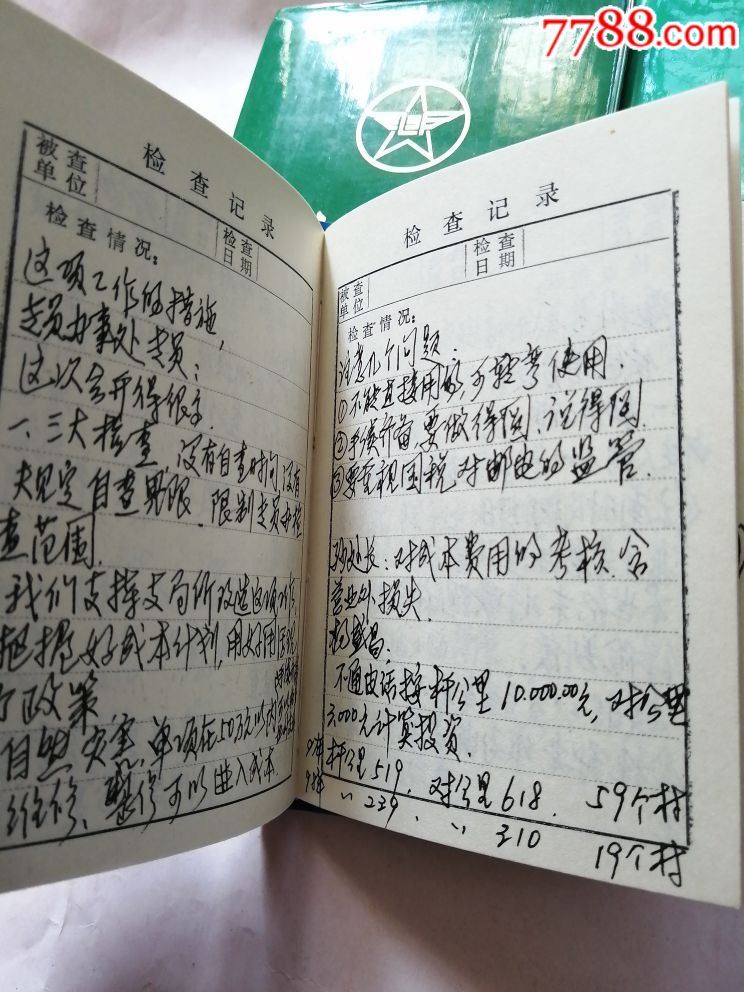 7788.com
检查记录
被查单位
检查日期
检查情况:
这项工作的措施,
专员办事处专员:
这次会开得很
一、三大检查,没有自查时间,没有
规定自查界限.限制专员办检
查范围.
我们支持支局所改造这项工作,
把握好成本计划,用好用
政策
自然灾害,单项在50万元以内
维修、整修可以进入成本.
检查记录
被查单位
检查日期
检查情况:
注意几个问题.
①不能直接用的,不轻考使用.
②手续齐备,要做得圆,说得圆.
③要重视国税对邮电的监管.
处长:对成本费用的考核,含
营业外损失.
不通电话按杆公里10.000.00元,对公里
3.000元计算投资.
杆公里519. 对公里618. 59个村
〃 239. 〃 310 19个村